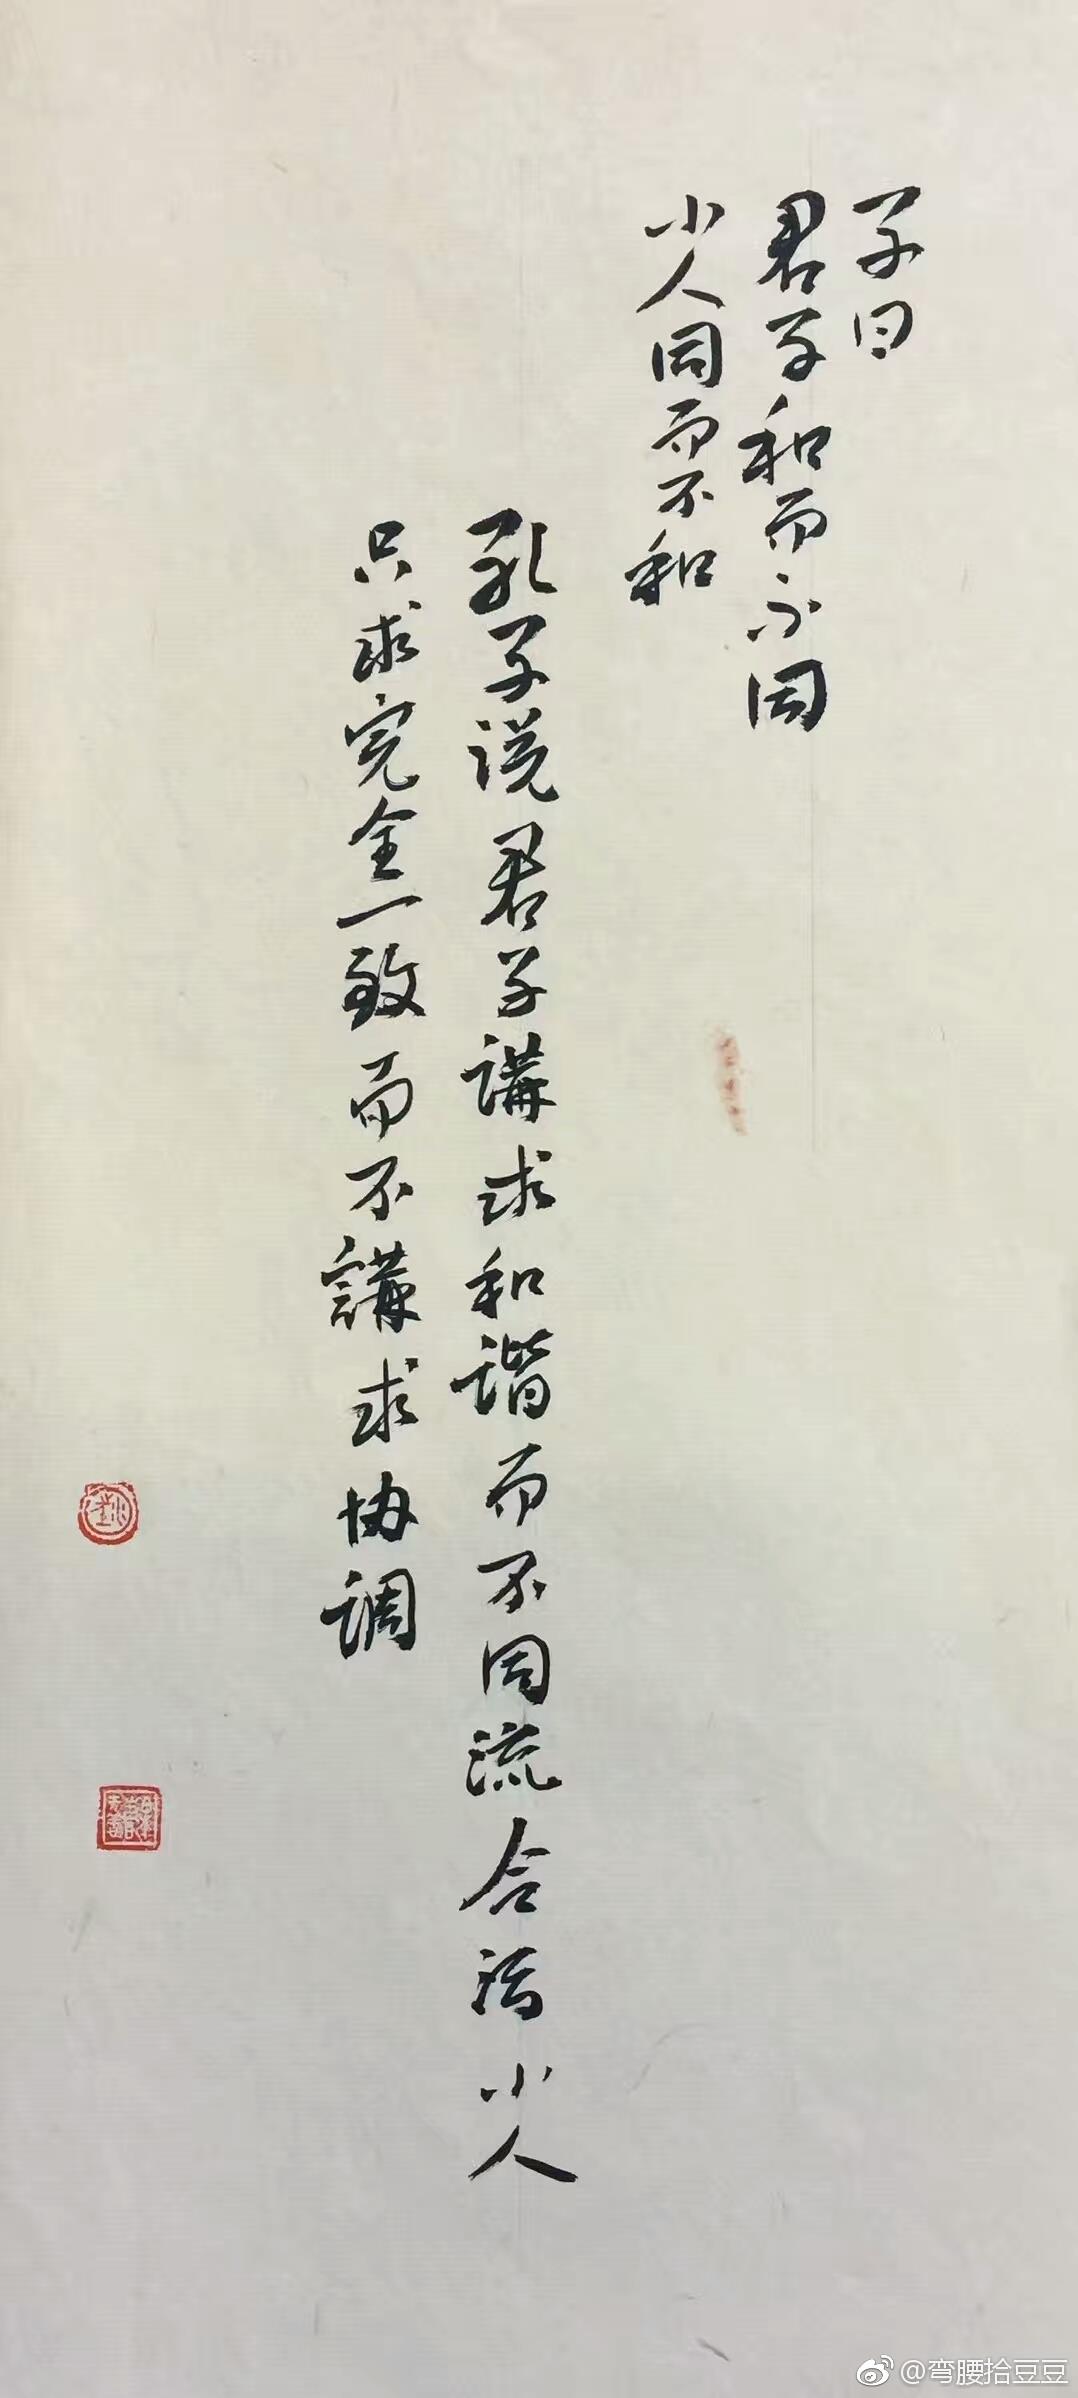 子曰
君子和而不同
小人同而不和
孔子说君子講求和谐而不同流合污小人
只求完全一致而不講求协调
@弯腰拾豆豆